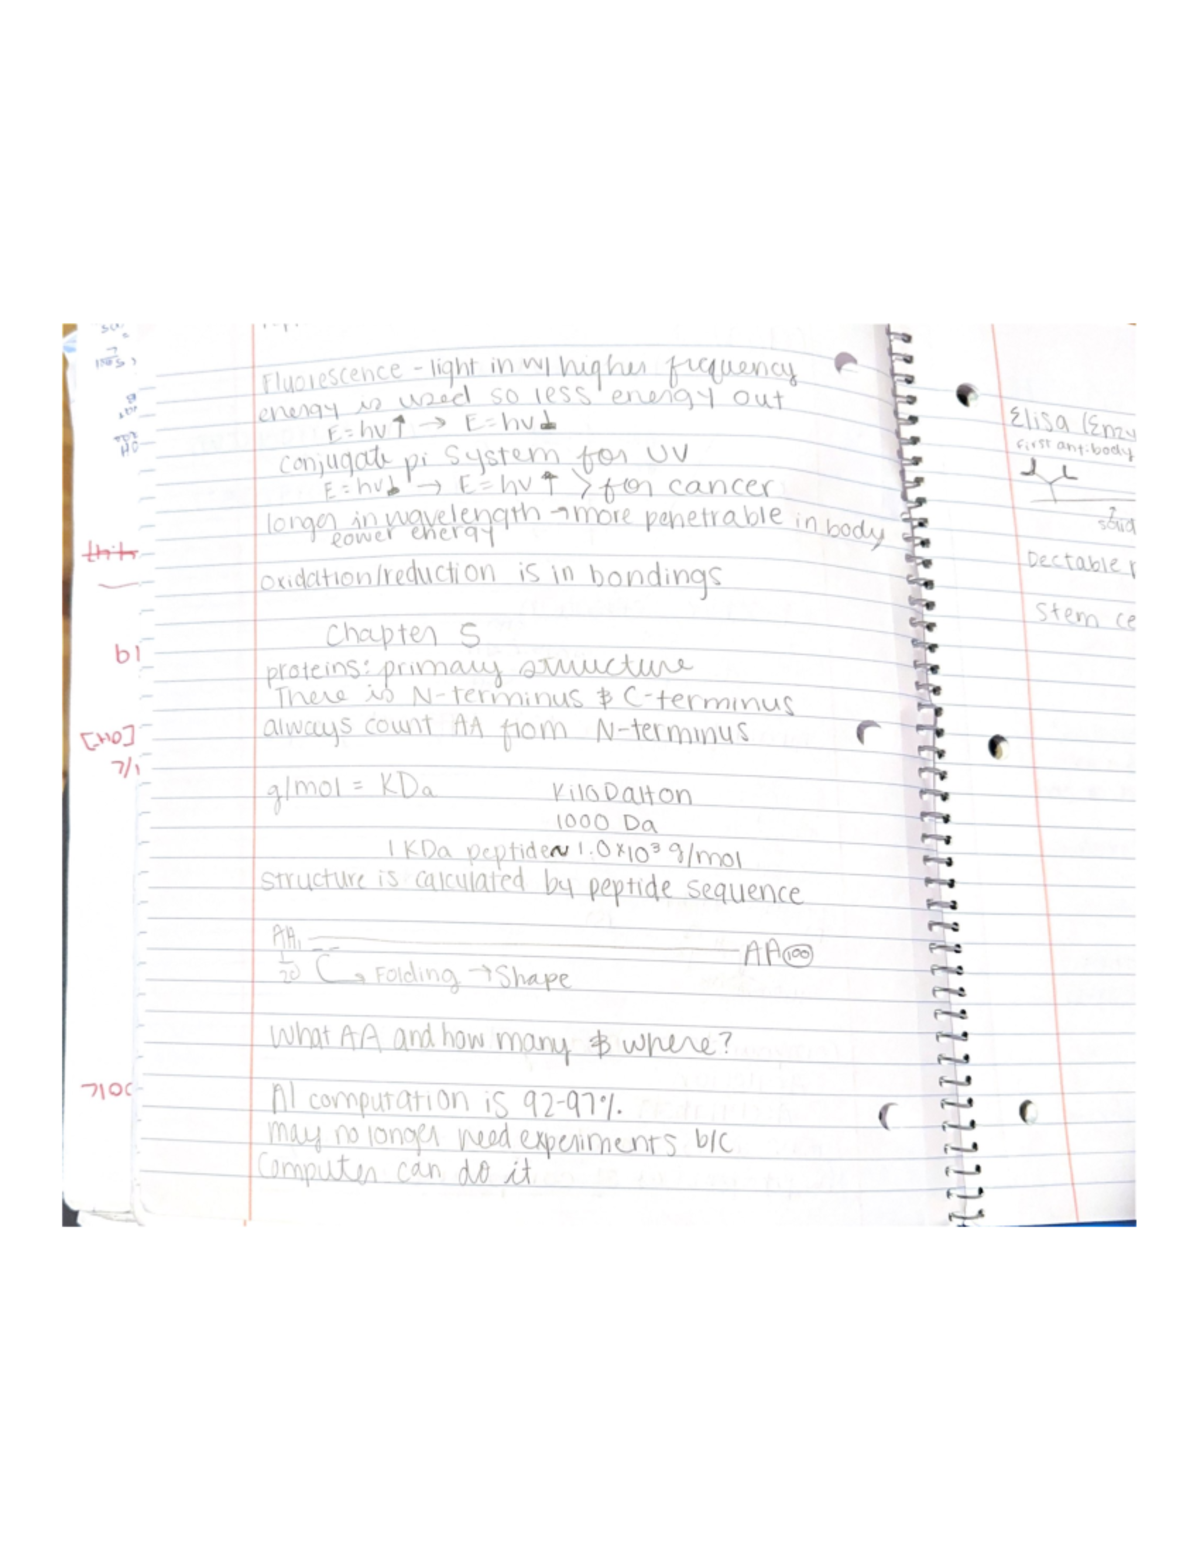 Fluorescence - light in w/ higher frequency
energy is used so less energy out
E=hν↑ → E=hν↓
conjugate pi system for UV
E=hν↓ → E=hν↑ > for cancer
longer in wavelength → more penetrable in body
lower energy
oxidation/reduction is in bondings
Chapter 5
proteins: primary structure
There is N-terminus & C-terminus
always count AA from N-terminus
g/mol = KDa KiloDalton
1000 Da
1 KDa peptide ~ 1.0×10³ g/mol
structure is calculated by peptide sequence
AA₁ AA(100)
1/20 Folding → Shape
What AA and how many & where?
AI computation is 92-97%.
may no longer need experiments b/c
computer can do it
Elisa (Enzy
First antibody
solid
Dectable
Stem ce